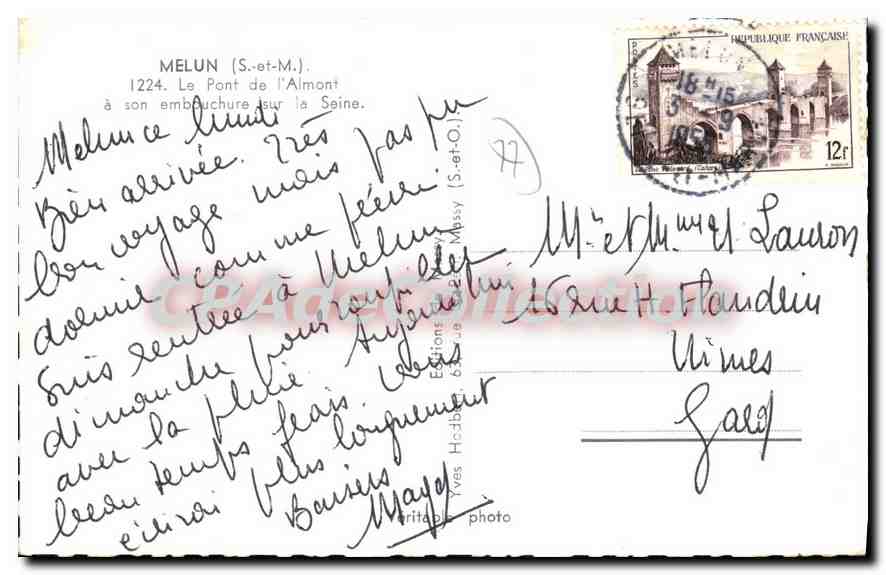 MELUN (S.-et-M.).
1224. Le Pont de l'Almont
à son embouchure sur la Seine.
Melun ce lundi
Bien arrivée. Très
bon voyage mais pas pu
dormir comme
Suis rentrée à Melun
dimanche pour
avec la pluie. Aujourd'hui
beau temps frais. Vous
écrirai plus longuement
Baisers
Magd
Véritable photo
Yves Hodbert, 63, rue Massy (S.-et-O.)
Editions
77
RÉPUBLIQUE FRANÇAISE
POSTES
12f
MELUN
18H15
3 9
Mr et Mme H. Lauron
16 rue H. Flandrin
Nimes
Gard
CPAdeCollection